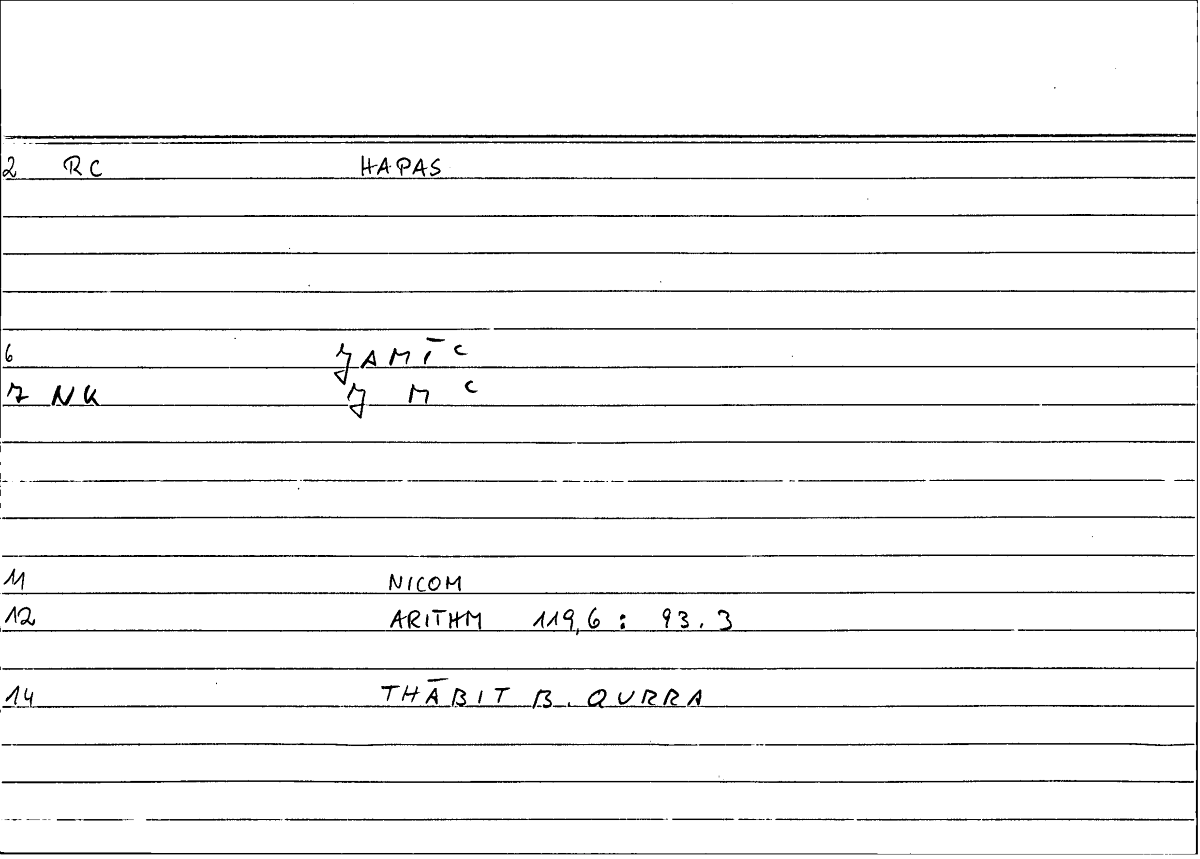 2 RC HAPAS
6 ǧAMĪʿ
7 NK ǧ M ʿ
11 NICOM
12 ARITHM 119,6 : 93.3
14 THĀBIT B. QURRA